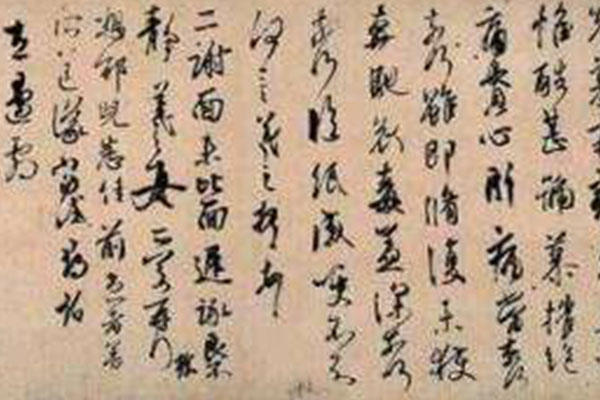 先墓再離
惟酷甚號慕摧絕
痛貫心肝痛當奈何
奈何雖即脩復未獲
奔馳哀毒益深奈何
奈何臨紙感哽不知
何言羲之頓首
二謝面未比面遲詠良
靜羲之女愛再拜
想邰兒悉佳前患者善
送議當
左邊劇